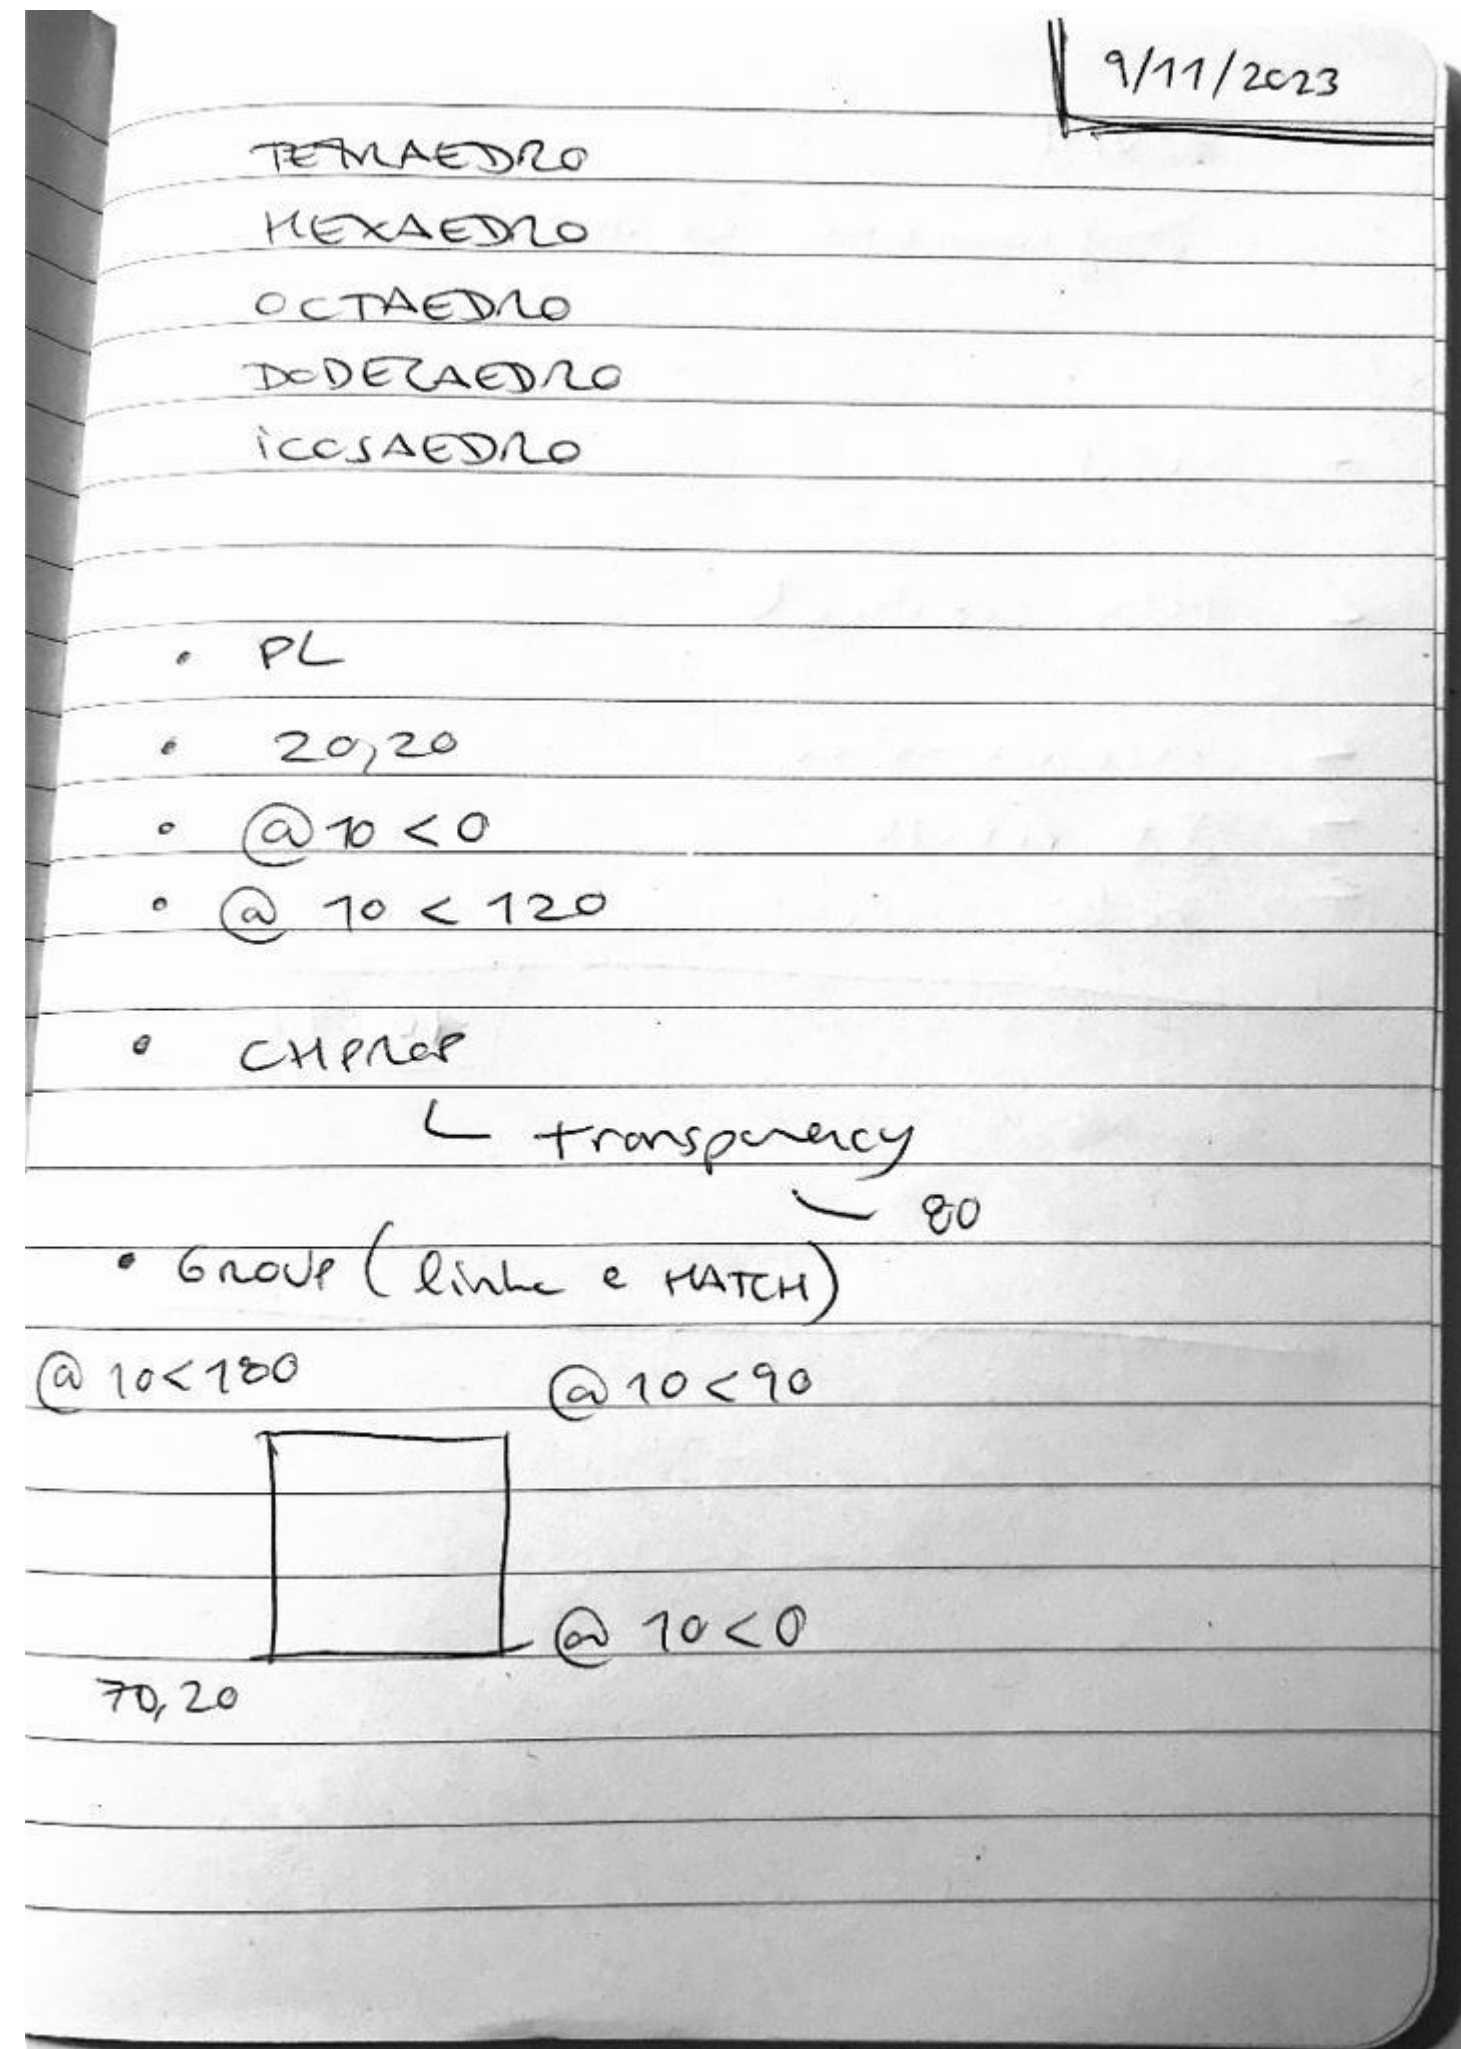 9/11/2023
TETRAEDRO
HEXAEDRO
OCTAEDRO
DODECAEDRO
iCOSAEDRO
• PL
• 20,20
• @10<0
• @ 10 < 120
• CHPROP
transparency
80
• GROUP (linha e HATCH)
@ 10<180 @ 10<90
@ 10<0
70,20